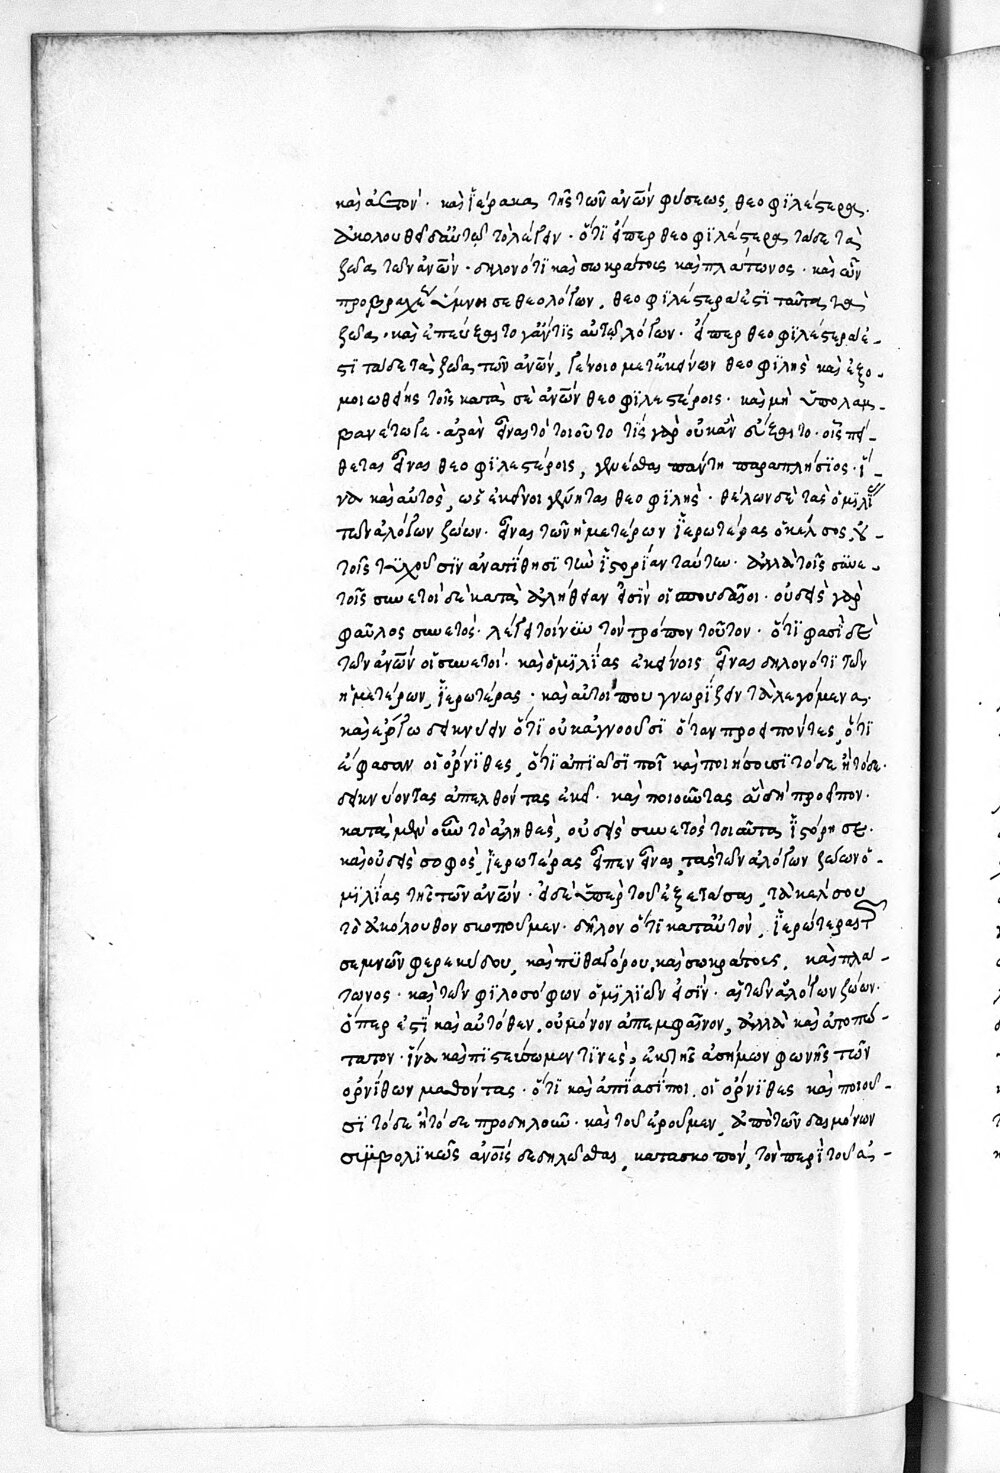 καὶ ἀετὸν· καὶ ἱέρακα, τῆς τῶν ἀνῶν φύσεως, θεοφιλέστερα.
ἀκολουθεῖ δ' αὐτῷ τὸ λέγειν· ὅτι εἴπερ θεοφιλέστερα τάδε τὰ
ζῶα τῶν ἀνῶν· δηλονότι καὶ σωκράτους καὶ πλάτωνος· καὶ ὧν
προβραχεῖ ὕμνησε θεολόγων, θεοφιλέστερα ἐστὶ ταῦτα τὰ
ζῶα· καὶ ἐπεύξαιτο γ' ἄν τις αὐτῷ λέγων· εἴπερ θεοφιλέστερα ἐ-
στι τάδε τὰ ζῶα τῶν ἀνῶν, γένοιο μετ' ἐκείνων θεοφιλὴς καὶ ἐξο-
μοιωθείης τοῖς κατὰ σὲ ἀνῶν θεοφιλεστέροις· καὶ μὴ ὑπολαμ-
βανέτω γε· ἀρὰν εἶναι τὸ τοιοῦτο τίς γὰρ οὐκ ἂν εὔξαιτο· οἷς πεί-
θεται εἶναι θεοφιλεστέροις, γενέσθαι πάντη παραπλήσιος· ἵ-
να καὶ αὐτὸς, ὡς ἐκεῖνοι γένηται θεοφιλὴς· θέλων δὲ τὰς ὁμιλί
τῶν ἀλόγων ζώων· εἶναι τῶν ἡμετέρων ἱερωτέρας ὁ κέλσος, οὐ-
τοῖς τυχοῦσιν ἀνατίθησι τὴν ἱστορίαν ταύτην· ἀλλὰ τοῖς συνε-
τοῖς συνετοὶ δὲ κατὰ ἀλήθειαν εἰσὶν οἱ σπουδαῖοι· οὐδεὶς γὰρ
φαῦλος συνετός· λέγει τοίνυν τὸν τρόπον τοῦτον· ὅτι φασὶ δὲ
τῶν ἀνῶν οἱ συνετοί· καὶ ὁμιλίας ἐκείνοις εἶναι δηλονότι τῶν
ἡμετέρων, ἱερωτέρας· καὶ αὐτοί που γνωρίζειν τὰ λεγόμενα.
καὶ ἔργω δεικνύειν ὅτι οὐκ ἀγνοοῦσι ὅταν προειπόντες, ὅτι
ἔφασαν οἱ ὄρνιθες, ὅτι ἀπίασί ποι καὶ ποιήσουσι τόδε ἢ τόδε.
δεικνύοντας ἀπελθόντας ἐκεῖ· καὶ ποιοῦντας ἃ δὴ προεῖπον.
κατὰ μὲν οὖν τὸ ἀληθὲς, οὐδεὶς συνετὸς τοιαῦτα ἱστόρησε·
καὶ οὐδεὶς σοφὸς, ἱερωτέρας εἶπεν εἶναι, τὰς τῶν ἀλόγων ζώων ὁ-
μιλίας τῆς τῶν ἀνῶν· εἰ δὲ ὑπὲρ τοῦ ἐξετάσαι, τὰ κέλσου
τὸ ἀκόλουθον σκοποῦμεν· δῆλον ὅτι κατ' αὐτὸν, ἱερώτεραι τ
σεμνῶν φερεκύδου, καὶ πυθαγόρου, καὶ σωκράτους, καὶ πλά-
τωνος· καὶ τῶν φιλοσόφων ὁμιλιῶν εἰσὶν· αἱ τῶν ἀλόγων ζώων·
ὅπερ ἐστὶ καὶ αὐτόθεν, οὐ μόνον ἀπεμφαῖνον, ἀλλὰ καὶ ἀτοπώ-
τατον· ἵνα καὶ πιστεύσωμεν τινὲς, ἐκ τῆς ἀσήμων φωνῆς τῶν
ὀρνίθων μαθόντας· ὅτι καὶ ἀπίασί ποι. οἱ ὄρνιθες καὶ ποιοῦ-
σι τόδε ἢ τόδε προδηλοῦν· καὶ τοῦ ἐροῦμεν, ἀπὸ τῶν δαιμόνων
συμβολικῶς ἀνοῖς δεδηλῶσθαι, κατὰ σκοπὸν, τὸν περὶ τοῦ ἀ-